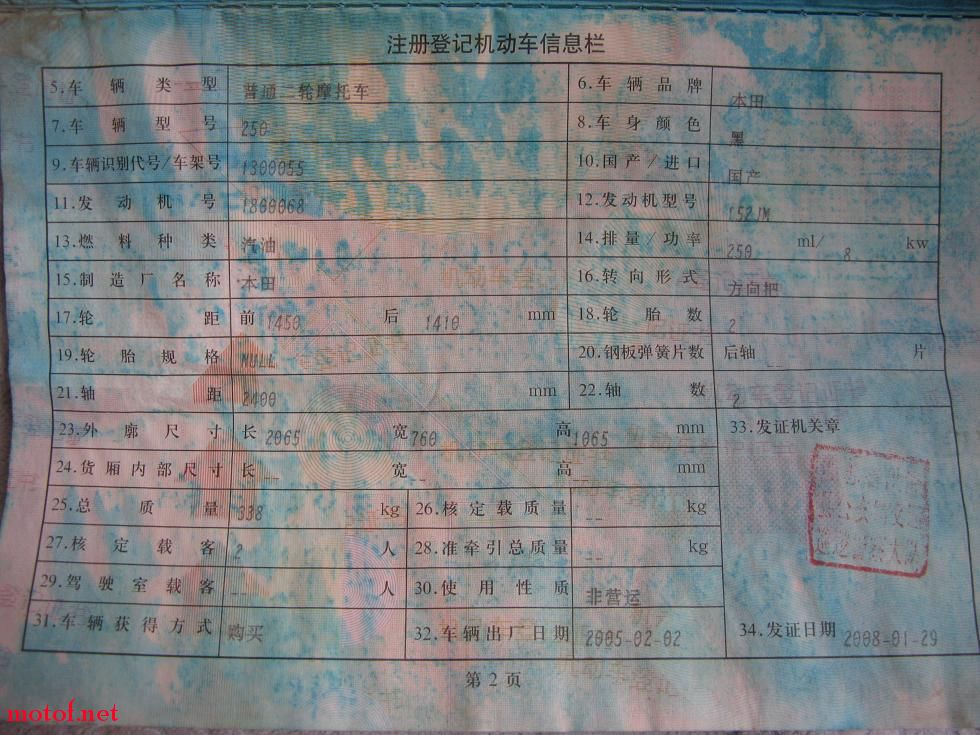 注册登记机动车信息栏
5.车辆类型 普通二轮摩托车 6.车辆品牌 本田
7.车辆型号 250 8.车身颜色 黑
9.车辆识别代号/车架号 1300055 10.国产/进口 国产
11.发动机号 1800068 12.发动机型号 152JM
13.燃料种类 汽油 14.排量/功率 250 ml/ 8 kw
15.制造厂名称 本田 16.转向形式 方向把
17.轮距 前 1450 后 1410 mm 18.轮胎数 2
19.轮胎规格 NULL 20.钢板弹簧片数 后轴 -- 片
21.轴距 2400 mm 22.轴数 2
23.外廓尺寸 长 2065 宽 760 高 1065 mm 33.发证机关章
24.货厢内部尺寸 长 -- 宽 -- 高 -- mm
25.总质量 338 kg 26.核定载质量 -- kg
27.核定载客 2 人 28.准牵引总质量 -- kg
29.驾驶室载客 -- 人 30.使用性质 非营运
31.车辆获得方式 购买 32.车辆出厂日期 2005-02-02 34.发证日期 2008-01-29
第 2 页
motof.net